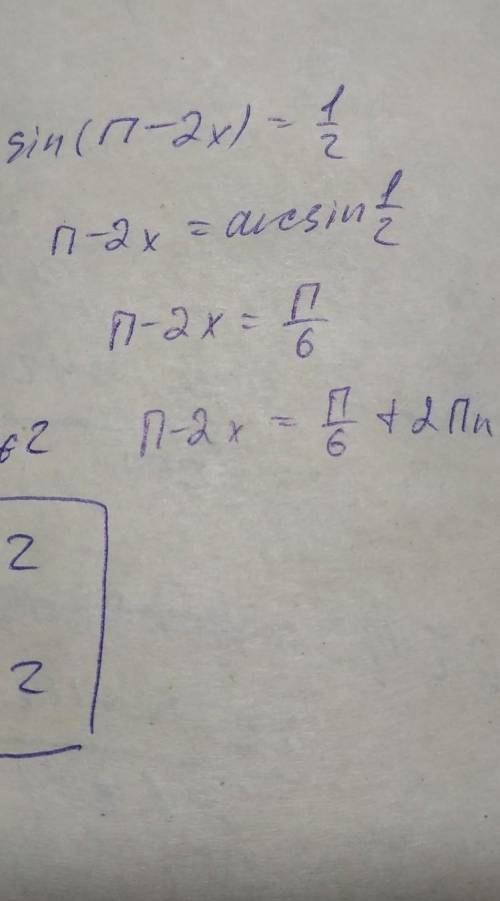 sin(π-2x) = 1/2
π-2x = arcsin 1/2
π-2x = π/6
π-2x = π/6 + 2πn
2
2